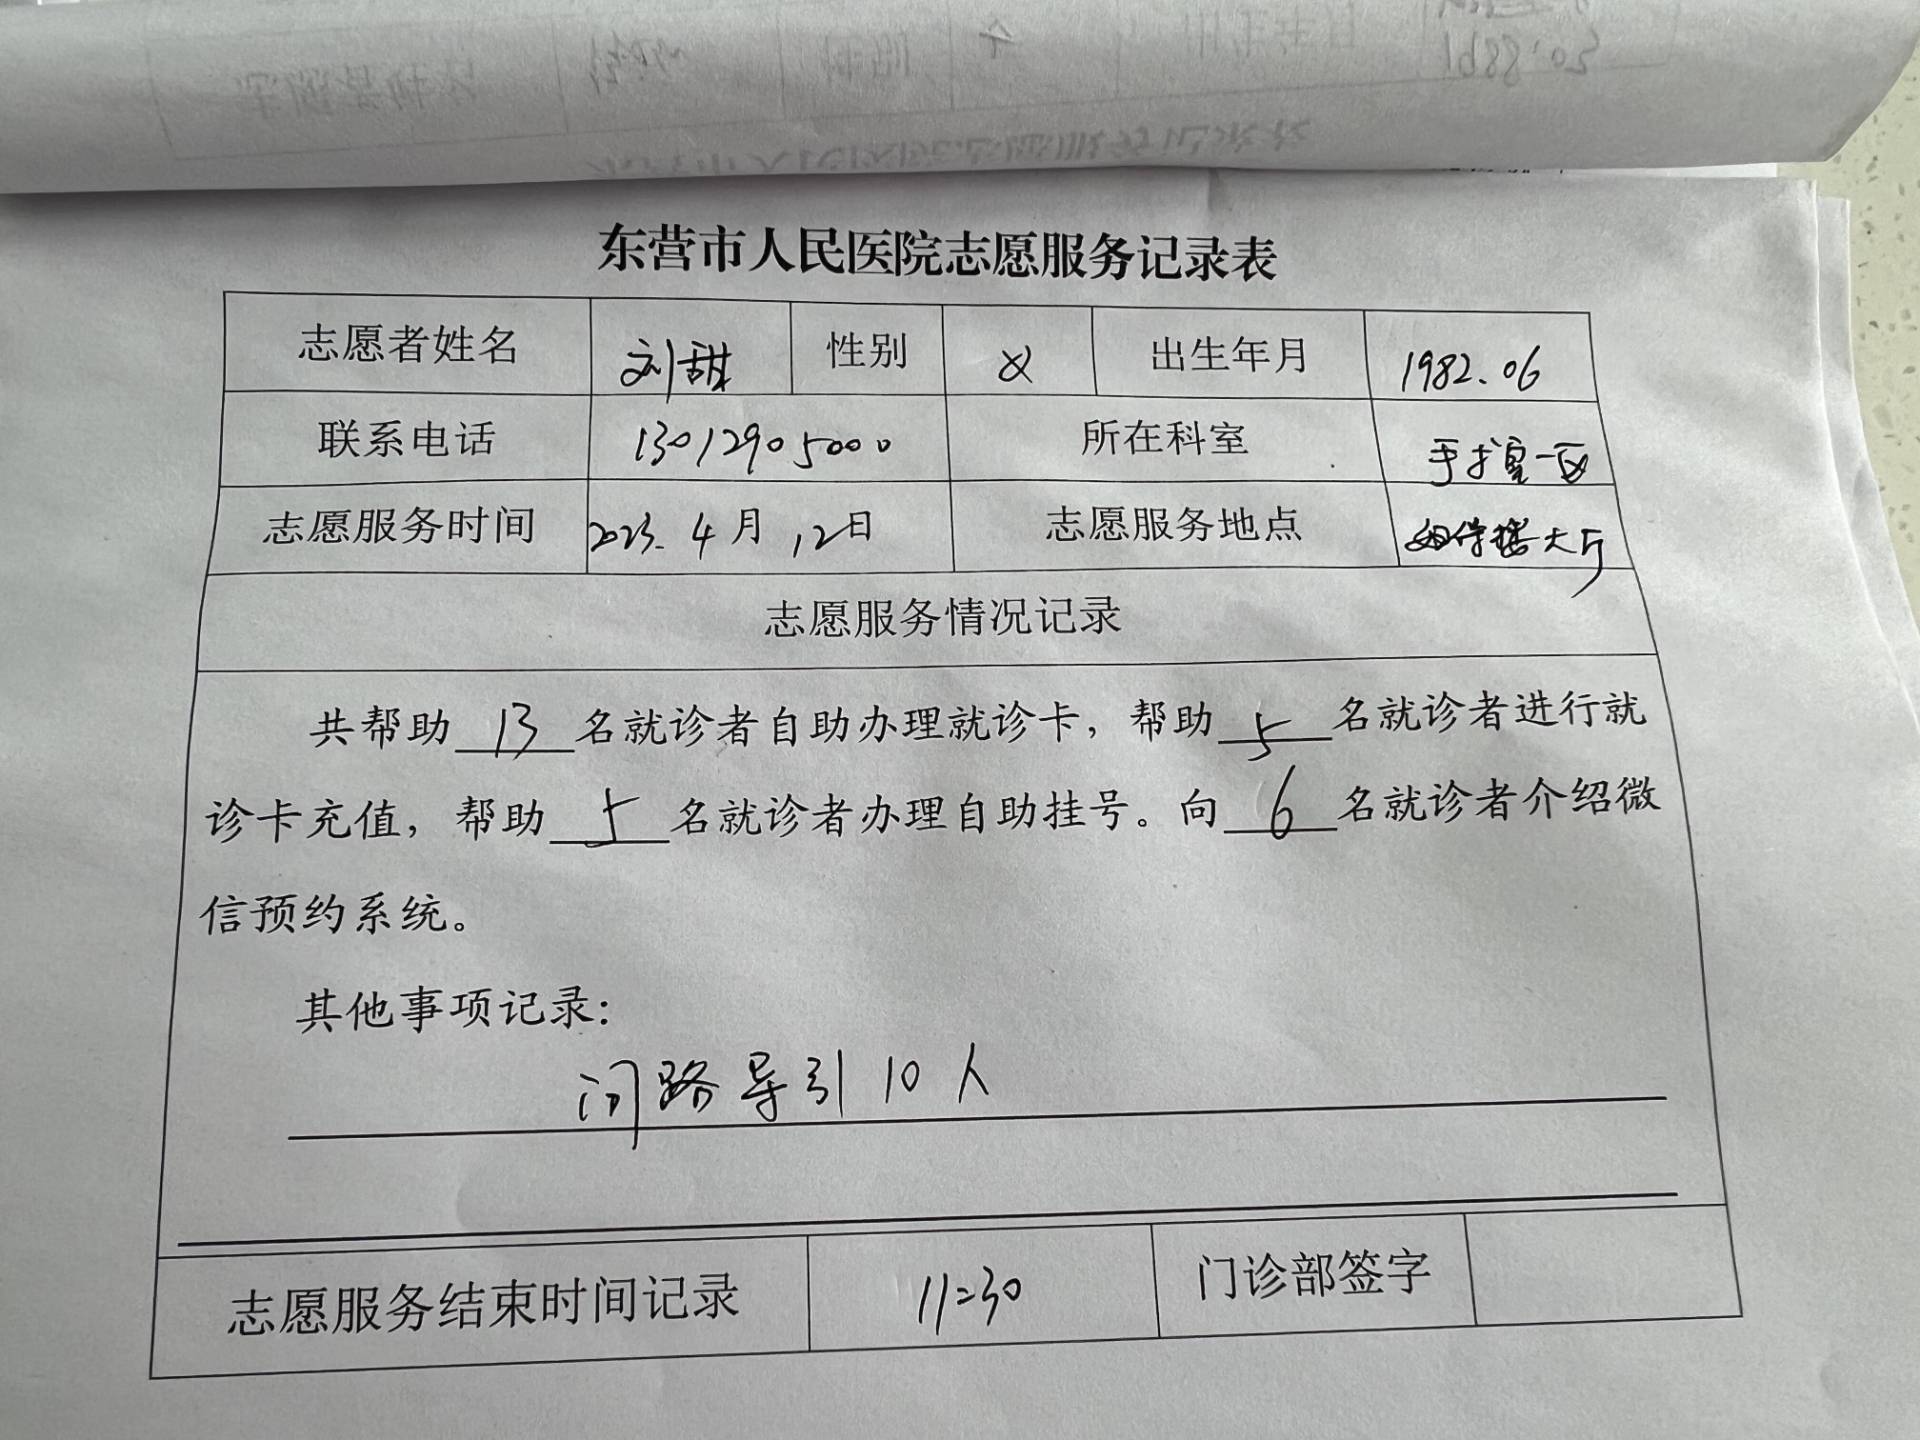 东营市人民医院志愿服务记录表
志愿者姓名 刘甜 性别 女 出生年月 1982.06
联系电话 13012905000 所在科室 手术室一区
志愿服务时间 2023.4月12日 志愿服务地点 妇保楼大厅
志愿服务情况记录
共帮助 13 名就诊者自助办理就诊卡，帮助 5 名就诊者进行就
诊卡充值，帮助 5 名就诊者办理自助挂号。向 6 名就诊者介绍微
信预约系统。
其他事项记录：
问路导引10人
志愿服务结束时间记录 11:30 门诊部签字